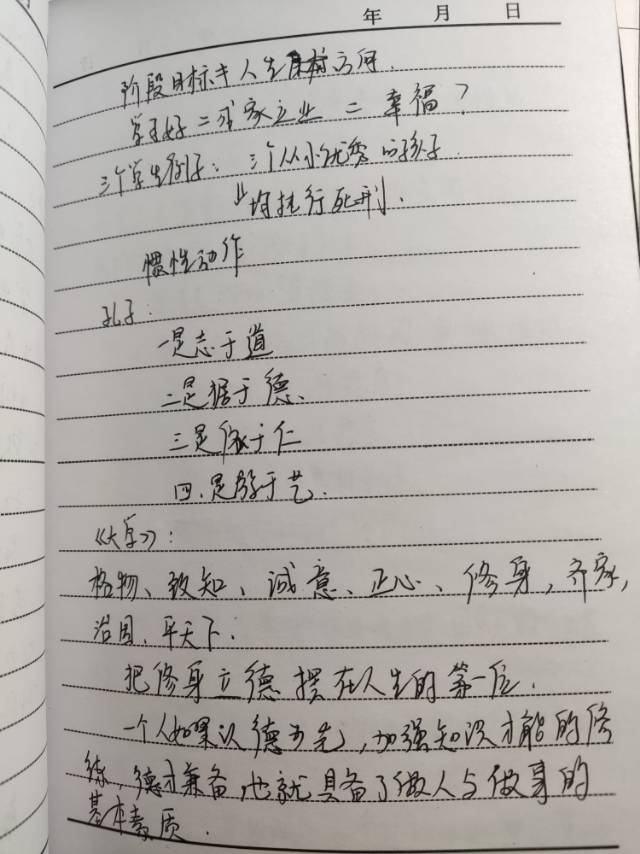 年 月 日
阶段目标≠人生目标方向.
学习好=成家立业=幸福?
三个学生例子: 三个从小优秀的孩子
均执行死刑.
惯性动作
孔子:
一是志于道
二是据于德、
三是依于仁
四.是游于艺.
《大学》:
格物、致知、诚意、正心、修身,齐家,
治国.平天下.
把修身立德摆在人生的第一位.
一个人如果以德为先,加强知识才能的修
练,德才兼备,也就具备了做人与做事的
基本素质.